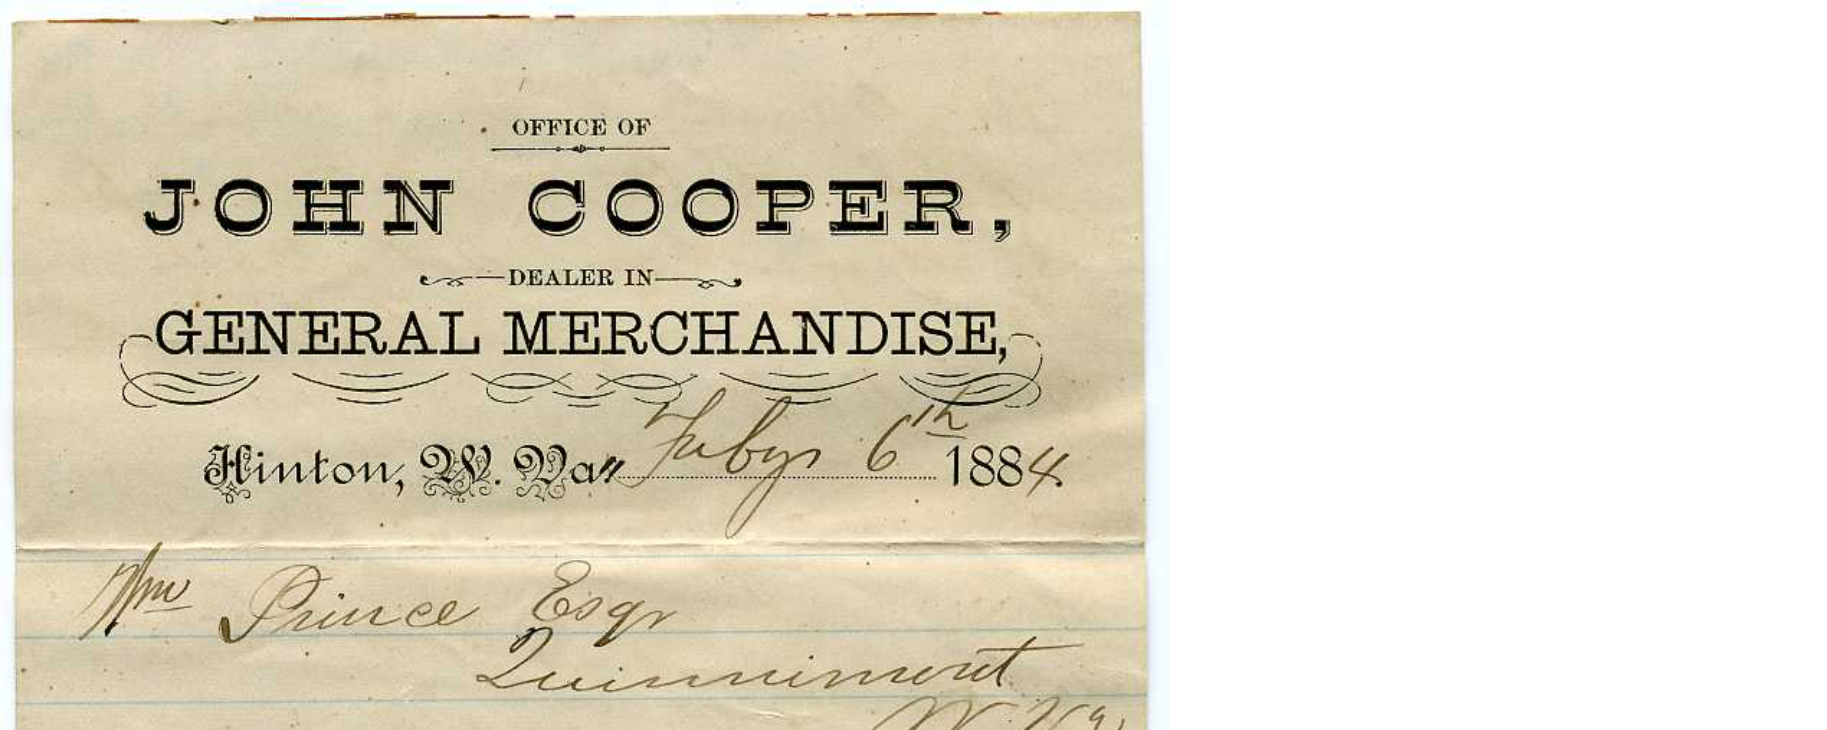 OFFICE OF
JOHN COOPER,
DEALER IN
GENERAL MERCHANDISE,
Hinton, W. Va., Feby 6th 1884.
Wm Prince Esqr
Quinnimont
W. Va,